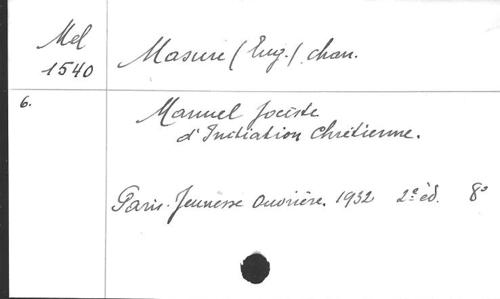 Mel
1540
Masure (Eug.) chan.
6.
Manuel Jociste
d'Initiation Chrétienne.
Paris. Jeunesse Ouvrière. 1932 2e éd. 8°